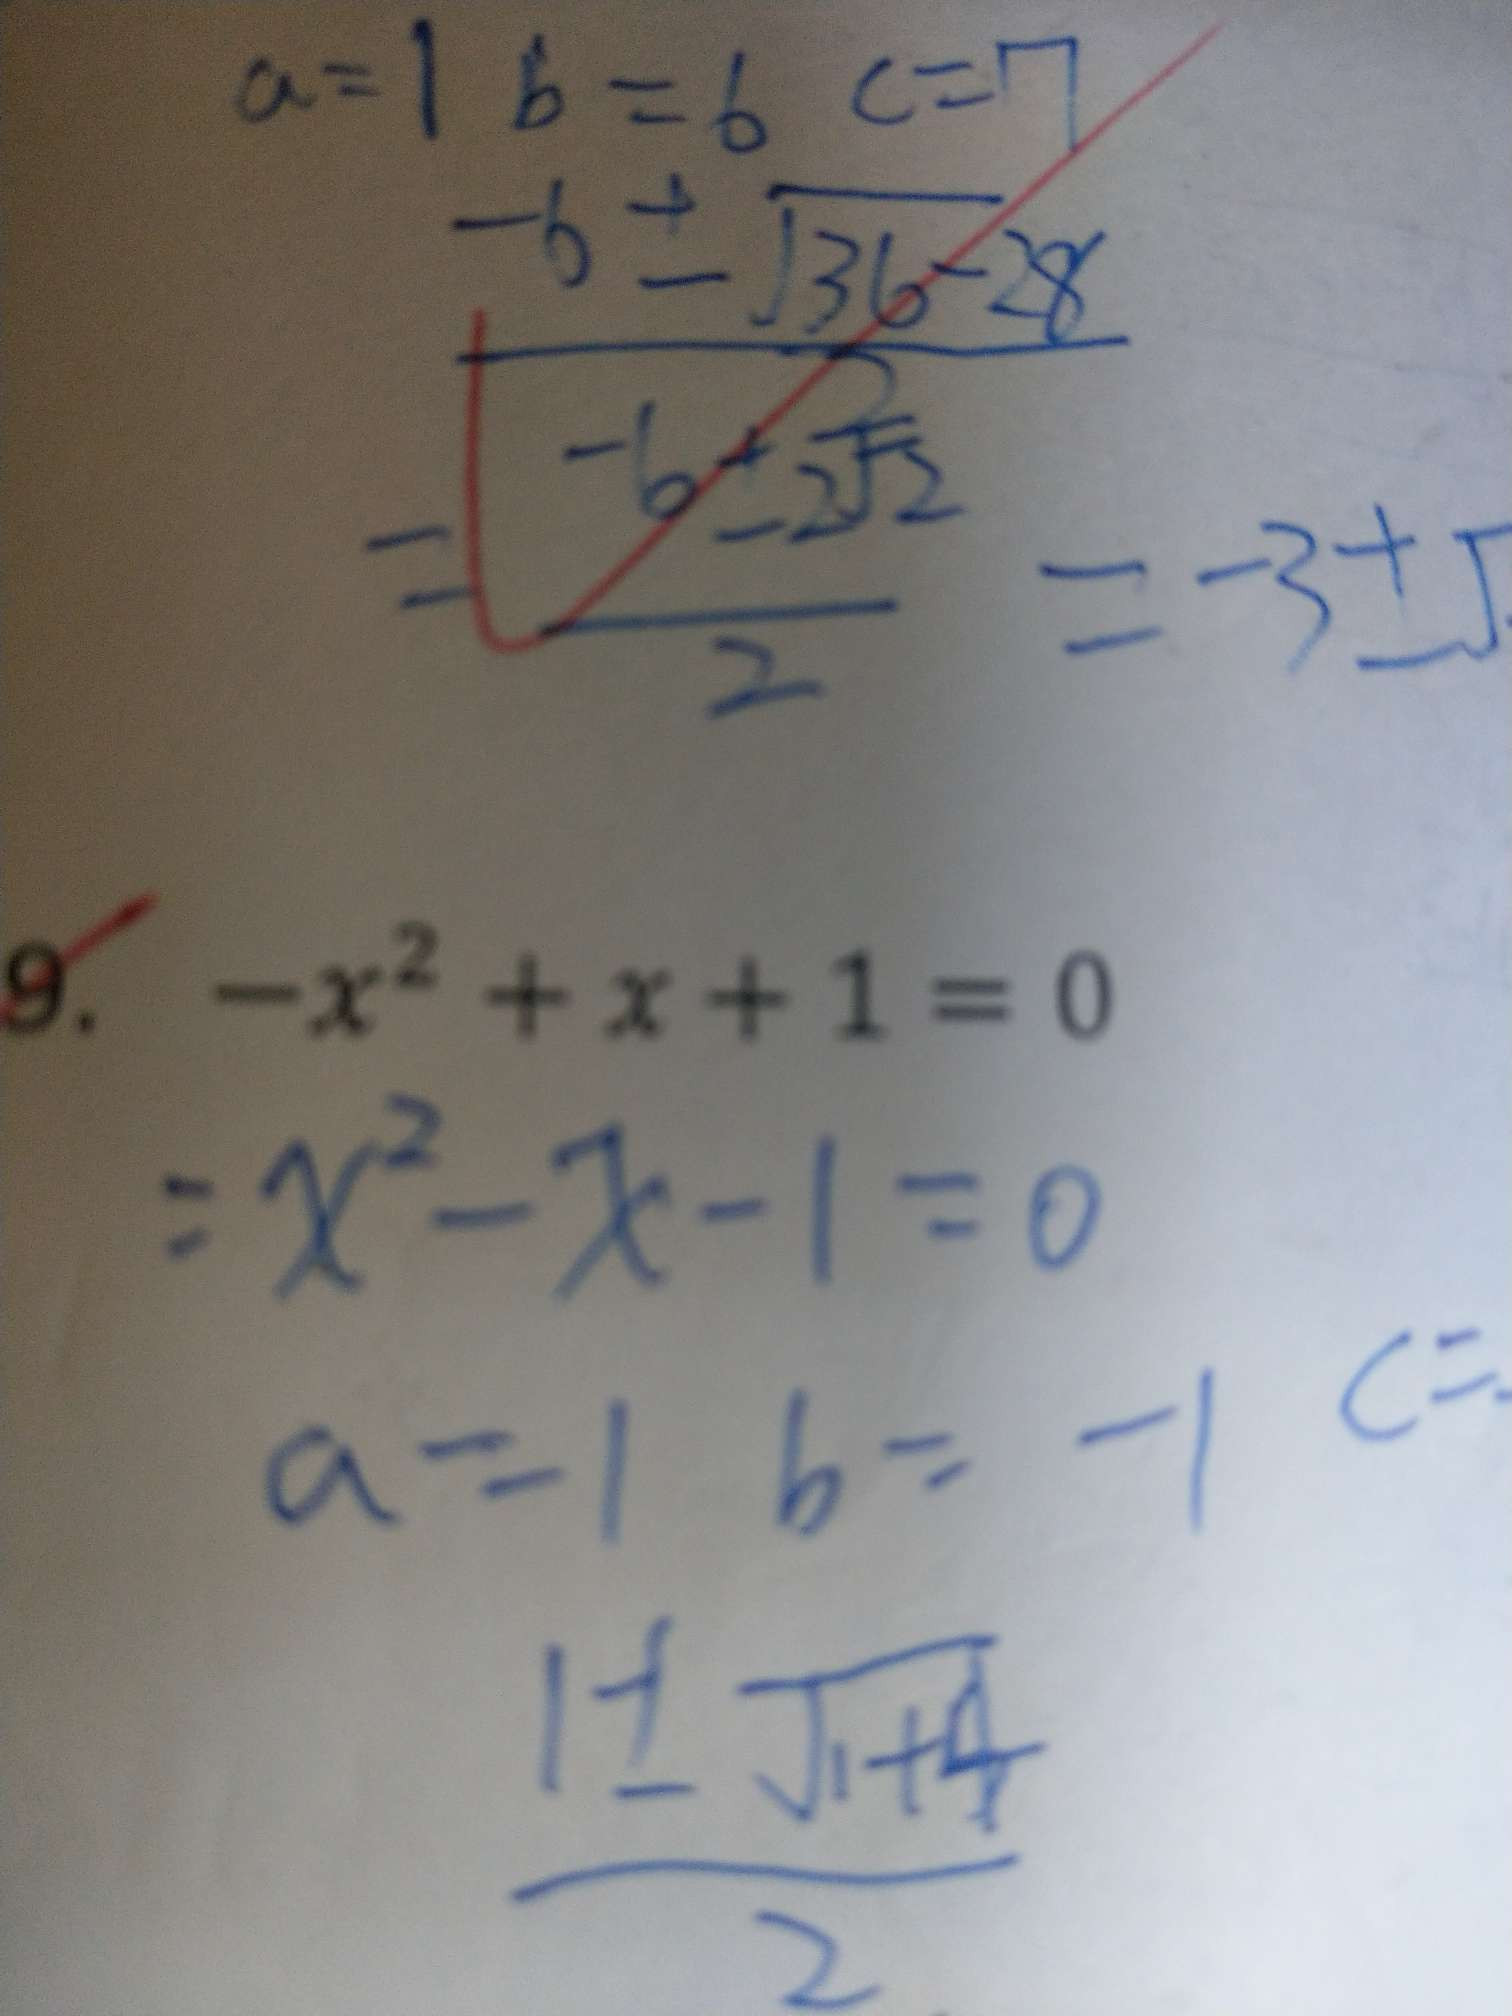 a = 1 b = 6 c = 7
-6 ± √36-28
2
= -6 ± 2√2 = -3 ± √
2
9. −x² + x + 1 = 0
= x² - x - 1 = 0
a = 1 b = -1 c =
1 ± √1+4
2